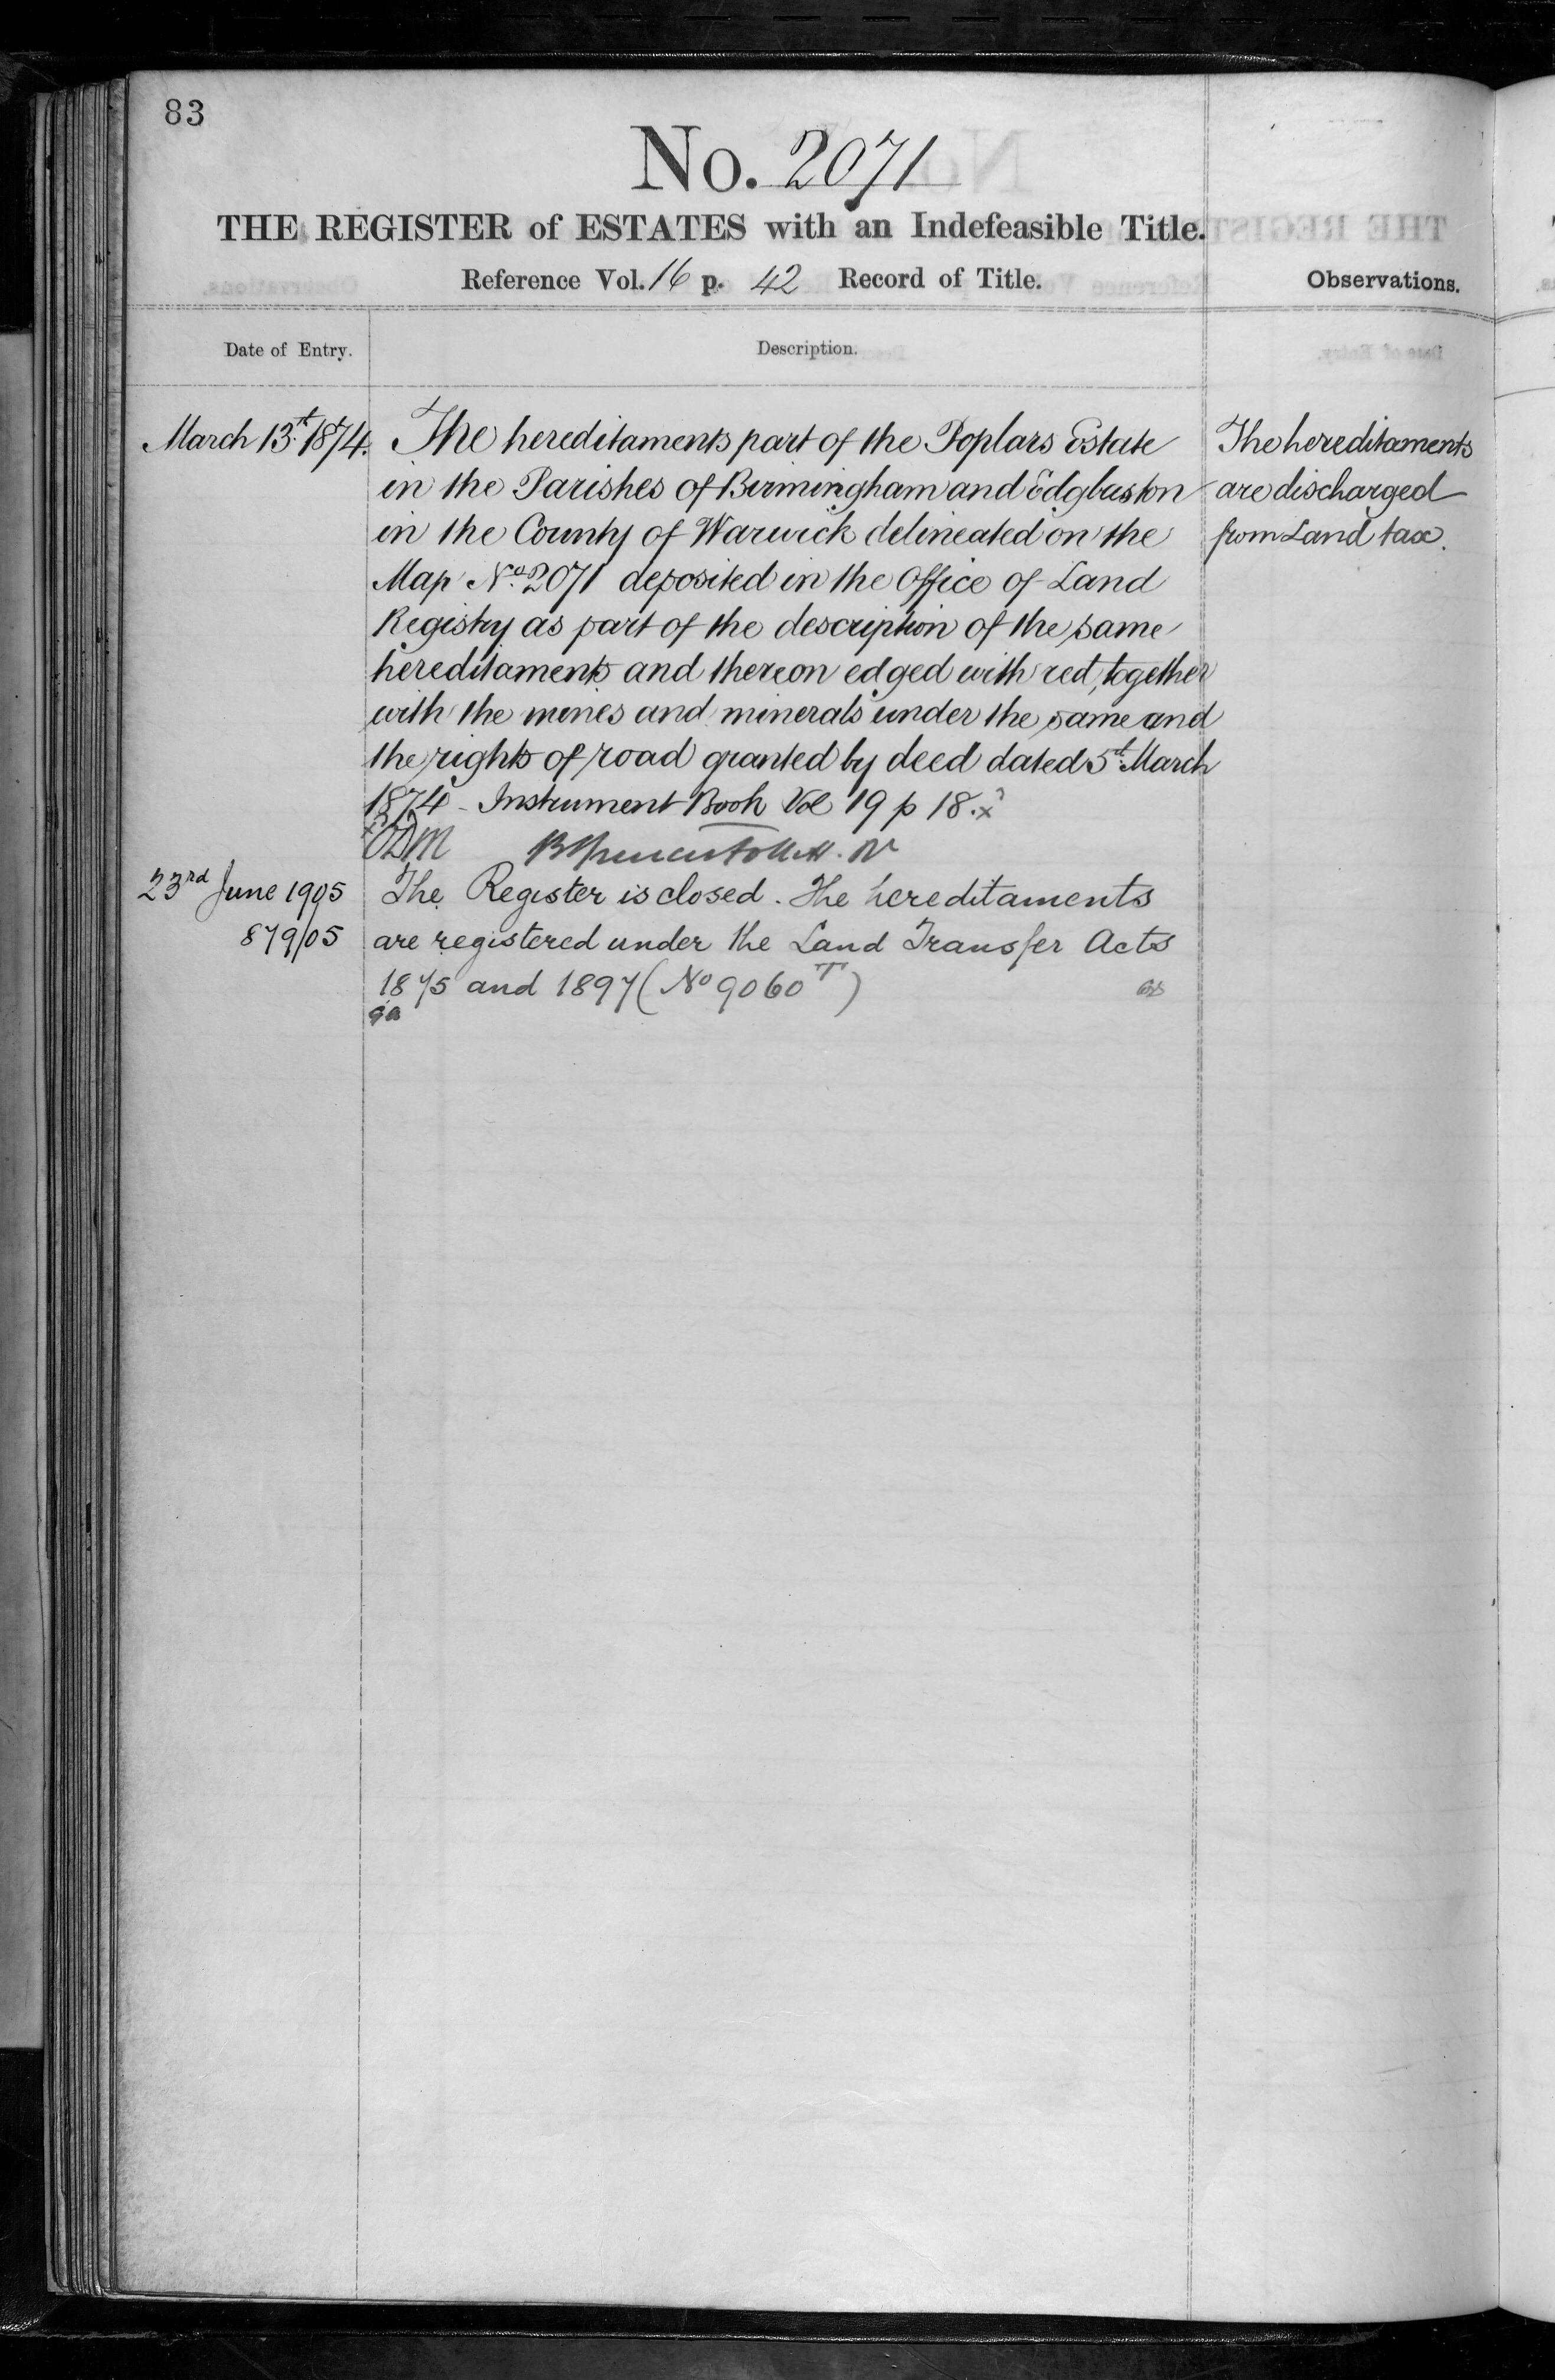 83
No. 2071
THE REGISTER of ESTATES with an Indefeasible Title.
Reference Vol. 16 p. 42 Record of Title.
Observations.
Date of Entry.
Description.
March 13t. 1874.
The hereditaments part of the Poplars Estate
in the Parishes of Birmingham and Edgbaston
in the County of Warwick delineated on the
Map No. 2071 deposited in the Office of Land
Registry as part of the description of the same
hereditaments and thereon edged with red, together
with the mines and minerals under the same and
the rights of road granted by deed dated 5t. March
1874 - Instrument Book Vol 19 p 18. x
The hereditaments
are discharged
from Land tax.
23rd June 1905
879/05
The Register is closed. The hereditaments
are registered under the Land Transfer Acts
1875 and 1897 (No 9060 T)